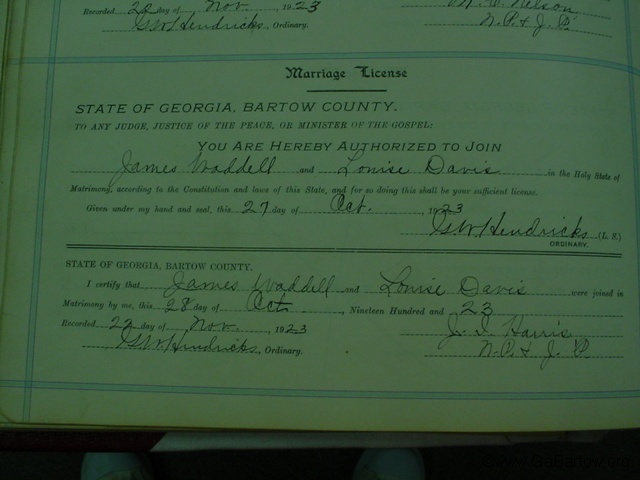 Recorded 22 day of Nov. 1923
M. C. Nelson
GW Hendricks, Ordinary.
N.P. & J.P.
Marriage License
STATE OF GEORGIA, BARTOW COUNTY.
TO ANY JUDGE, JUSTICE OF THE PEACE, OR MINISTER OF THE GOSPEL:
YOU ARE HEREBY AUTHORIZED TO JOIN
James Waddell and Louise Davis in the Holy State of
Matrimony, according to the Constitution and laws of this State, and for so doing this shall be your sufficient license.
Given under my hand and seal, this 27 day of Oct. , 1923
GW Hendricks (L. S.)
ORDINARY.
STATE OF GEORGIA, BARTOW COUNTY.
I certify that James Waddell and Louise Davis were joined in
Matrimony by me, this 28 day of Oct. , Nineteen Hundred and 23
Recorded 22 day of Nov. , 1923
J. I. Harris
GW Hendricks, Ordinary.
N.P. & J.P.